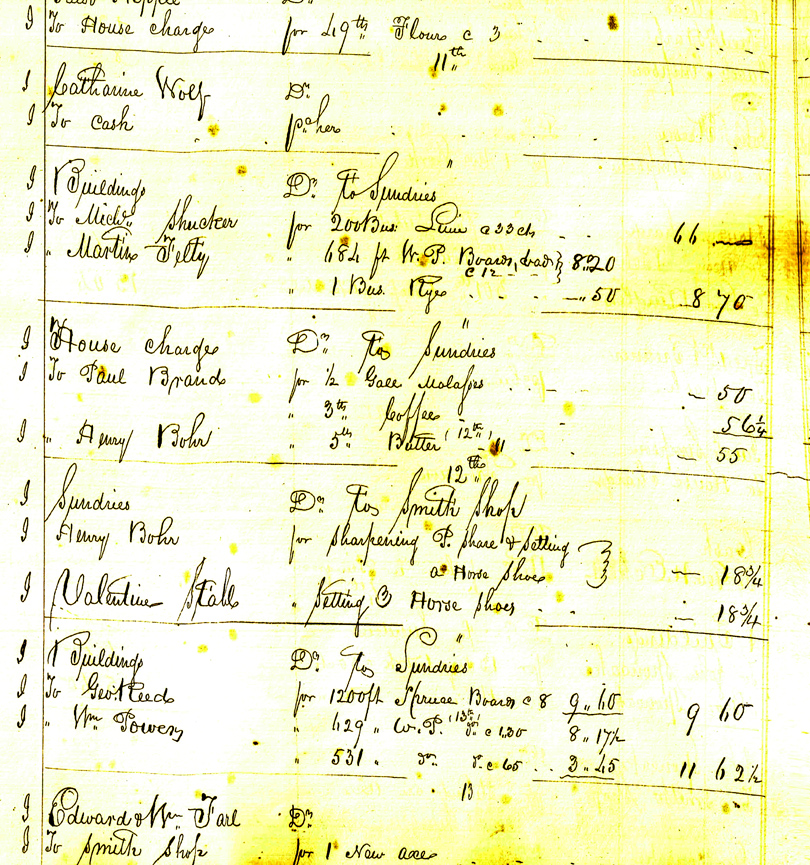 I To House charges for 49 th Flour c 3
11 th
I Catharine Wolf Dr.
I To cash pr. her
"
I Buildings Dr. To Sundries
I To Michl. Shucker for 200 Bus. Lime c 33 cts 66
I " Martin Felty " 684 ft W. P. Boards, c 12 8.20
" 1 Bus. Rye 50 8 70
"
I House charges Dr. To Sundries
I To Paul Brand for 1/2 Gall Molasses 50
" 3 th Coffee 56 1/4
I " Henry Bohr " 5 th Butter (12th) 11 55
12 th
I Sundries Dr. To Smith Shop
I Henry Bohr for sharpening P. share & Setting
a Horse Shoe 18 3/4
I Valentine Stahl " Setting 3 Horse shoes 18 3/4
"
I Buildings Dr. To Sundries
I To Geo. Reed for 1200 ft Spruce Boards c 8 9.60 9 60
I " Wm Powers " 629 " W. P. (13th) do c 1.30 8.17 1/2
" 531 " do do c 65 3.45 11 62 1/2
13
I Edward & Wm Farl Dr.
I To Smith Shop for 1 New axe